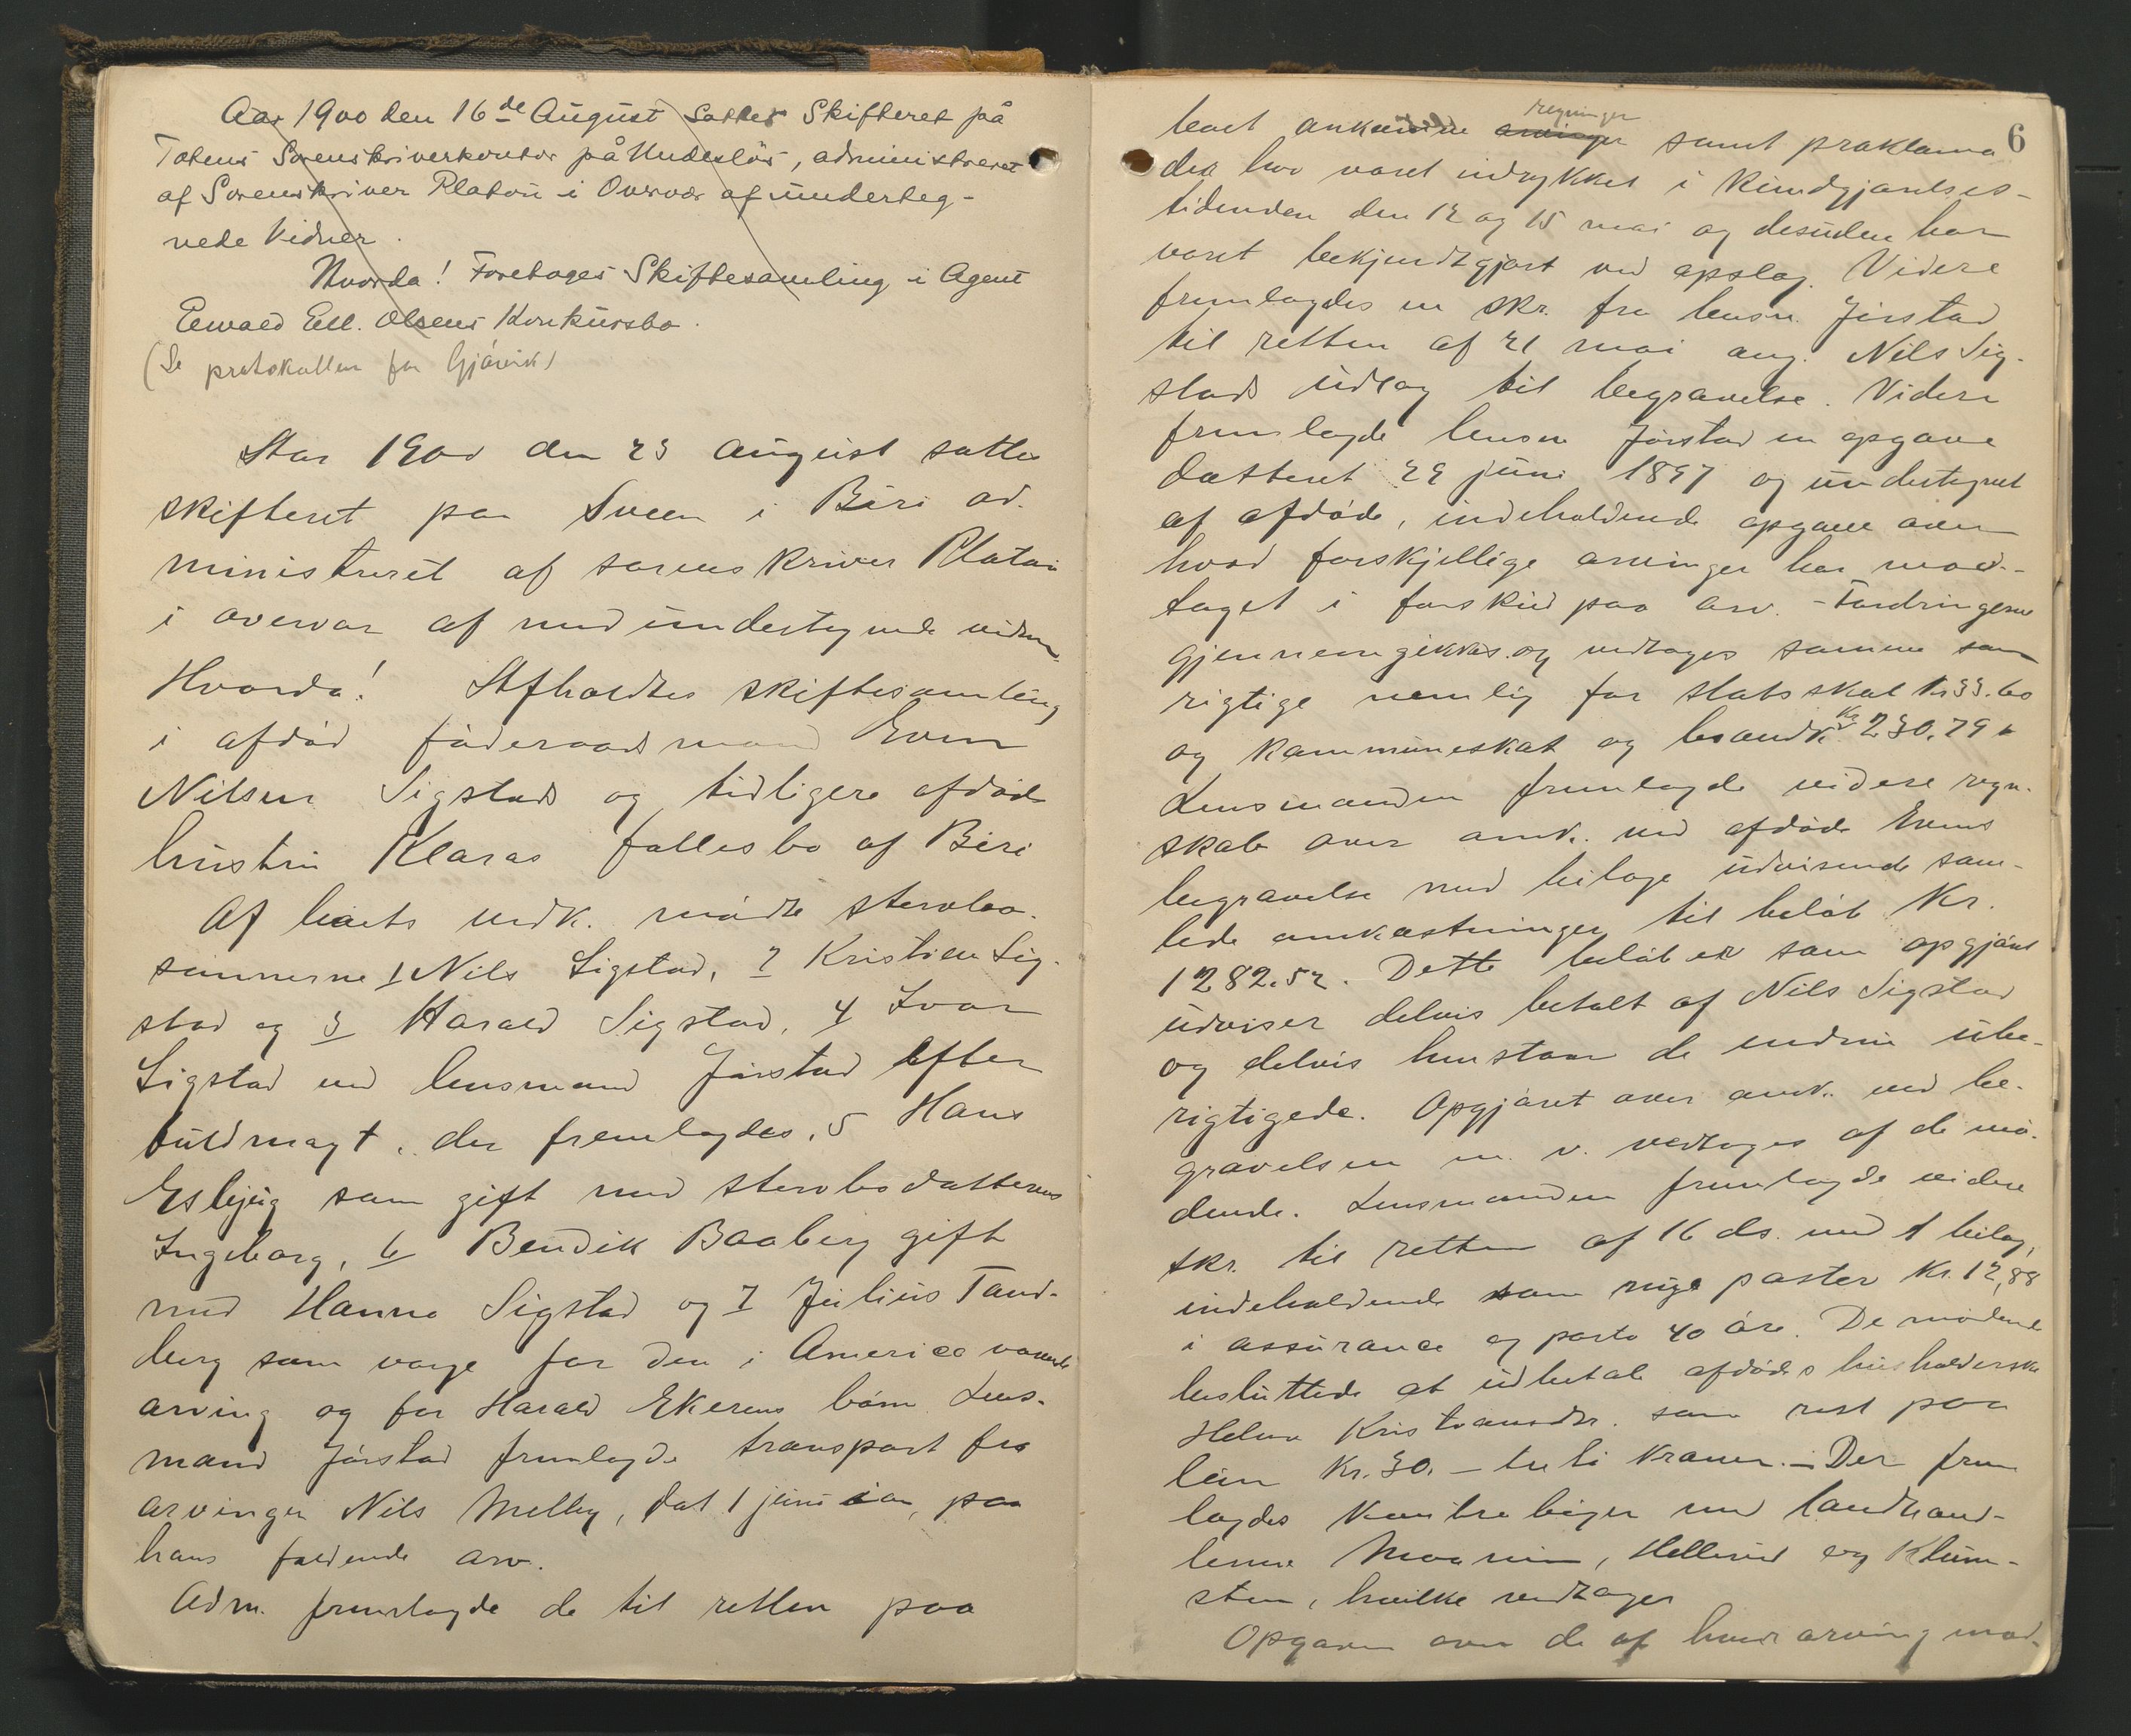 Aar 1900 den 16de August sattes Skifteret på
Totens Sorenskriverkontor på Hndeslös, administreret
af Sorenskriver Platou i Overvær af underteg-
nede Vidner.
Hvorda! Foretoges Skiftesamling i Agent
Eewald Ell. Olsens Konkursbo.
(Se protokollen for Gjøvik)
Aar 1900 den 23 august sattes
skifteret paa Sveen i Biri ad-
ministreret af sorenskriver Platou
i overvær af med undertegnede vidner.
Hvorda! Afholdtes skiftesamling
i afdød föderaadsmand Even
Nilsen Sigstads og tidligere afdöde
hustru Klaras fællesbo af Biri
Af boets vedk. mödte stervbo-
sönnerne 1 Nils Sigstad, 2 Kristian Sig-
stad og 3 Harald Sigstad, 4 Ivar
Sigstad ved lensmand Jörstad efter
fuldmagt, der fremlagdes, 5 Hans
Esbjug som gift med stervbodatteren
Ingeborg, 6 Bendik Baaberg gift
med Hanna Sigstad og 7 Julius Tand-
berg som værge for den i America værende
arving og for Harald Ekerens börn. Lens-
mand Jörstad fremlagde transport fra
arvingen Nils Melby, dat 1 juni iaar, paa
hans faldende arv.
Adm. fremlagde de til retten paa
6
regninger
boet ankomne arvinger samt proklama
der har været indrykket i Kundgjørelses-
tidenden den 12 og 15 mai og desuden har
været bekjendtgjort ved opslag. Videre
fremlagdes en skr. fra lensm. Jörstad
til retten af 21 mai ang. Nils Sig-
stads udlæg til begravelse. Videre
fremlagde lensm Jörstad en opgave
datteret 29 juni 1897 og undertegnet
af afdöde, indeholdende opgave over
hvad forskjellige arvinger har mod-
taget i forskud paa arv. - Fordringerne
gjennemgikkes og vedtoges samme som
rigtige nemlig for statsskat kr 33.60
og kommuneskat og brandk. Kr 230,79
Lensmanden fremlagde videre regn-
skab over omk. ved afdöde Evens
begravelse med bilage udvisende sam-
lede omkostninger til belöb Kr.
1282.52. Dette belöb er som opgjöret
udviser delvis betalt af Nils Sigstad
og delvis henstaar de endnu ube-
rigtigede. Opgjöret over omk. ved be-
gravelsen m. v. vedtoges af de mö-
dende. Lensmanden fremlagde videre
skr. til retten af 16 ds. med 1 bilag,
indeholdende som nye poster kr. 12,88
i assurance og porto 40 öre. De mödende
besluttede at udbetale afdödes husholderske
Helene Kristiansdtr. som rest paa
lön Kr. 30. - treti kroner. - Der frem
lagdes kontraböger med landhand-
lerne Moarum, Hellerud og Klum-
sten, hvilke vedtoges
Opgaven over de af hver arving mod-